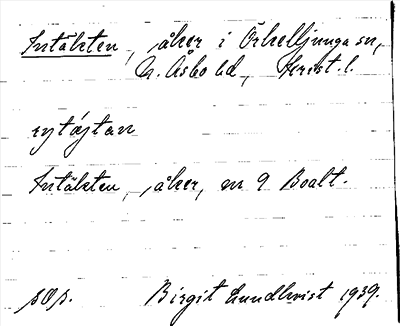 Intäkten, åker i Örkelljunga sn,
N. Åsbo hd, Krist. l.
Intäkten, åker, nr 9 Boalt.
sOs. Birgit Lundkvist 1939.